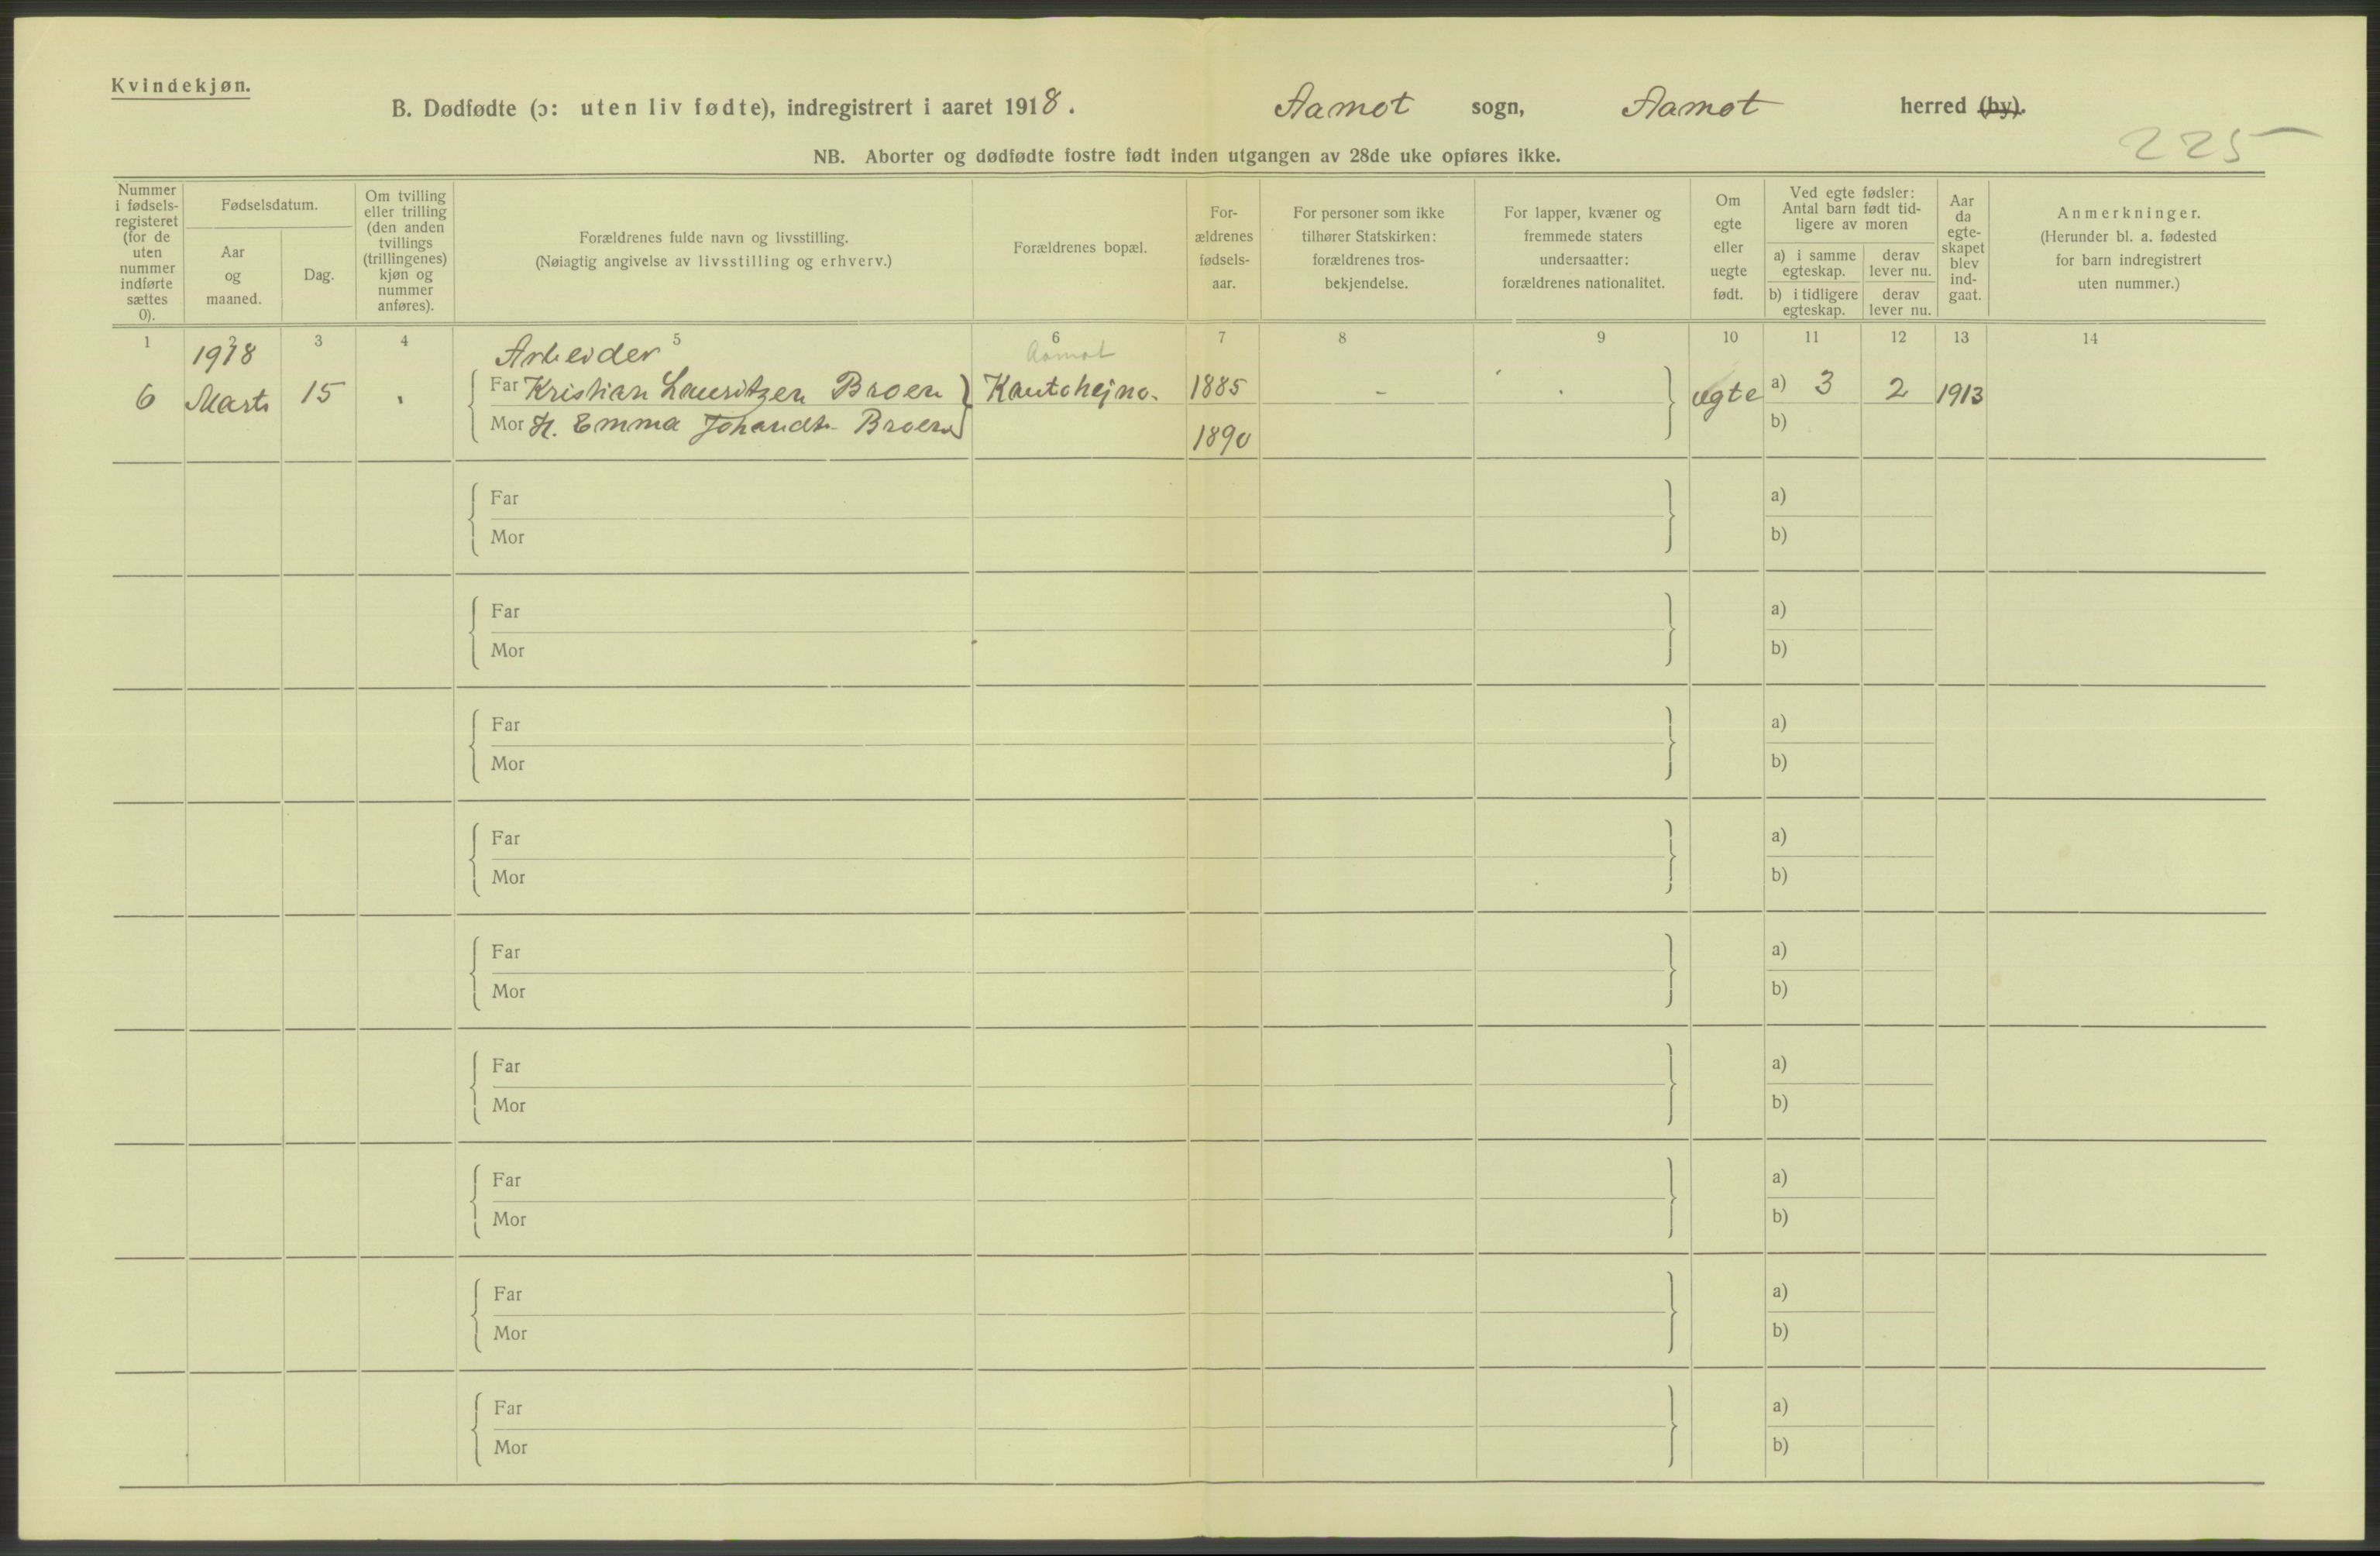 Kvindekjøn.
B. Dødfødte (ɔ: uten liv fødte), indregistrert i aaret 1918. Aamot sogn, Aamot herred (by).
225
NB. Aborter og dødfødte fostre født inden utgangen av 28de uke opføres ikke.
Nummer i fødsels-registeret (for de uten nummer indførte sættes 0).
Fødselsdatum.
Aar og maaned.
Dag.
Om tvilling eller trilling (den anden tvillings (trillingenes) kjøn og nummer anføres).
Forældrenes fulde navn og livsstilling.
(Nøiagtig angivelse av livsstilling og erhverv.)
Forældrenes bopæl.
For-ældrenes fødsels-aar.
For personer som ikke tilhører Statskirken: forældrenes tros-bekjendelse.
For lapper, kvæner og fremmede staters undersaatter: forældrenes nationalitet.
Om egte eller uegte født.
Ved egte fødsler: Antal barn født tid-ligere av moren
a) i samme egteskap.
derav lever nu.
b) i tidligere egteskap.
derav lever nu.
Aar da egte-skapet blev ind-gaat.
Anmerkninger.
(Herunder bl. a. fødested for barn indregistrert uten nummer.)
1 2 3 4 5 6 7 8 9 10 11 12 13 14
1918 Arbeider Aamot
6 Marts 15 Far Kristian Lauritzen Broen Kautohejno. 1885 - egte a) 3 2 1913
Mor H. Emma Broen 1890 b)
Far a)
Mor b)
Far a)
Mor b)
Far a)
Mor b)
Far a)
Mor b)
Far a)
Mor b)
Far a)
Mor b)
Far a)
Mor b)
Far a)
Mor b)
Far a)
Mor b)